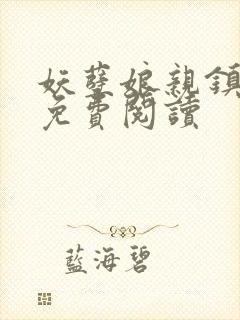 妖孽娘親鎮
免費閱讀
藍海碧